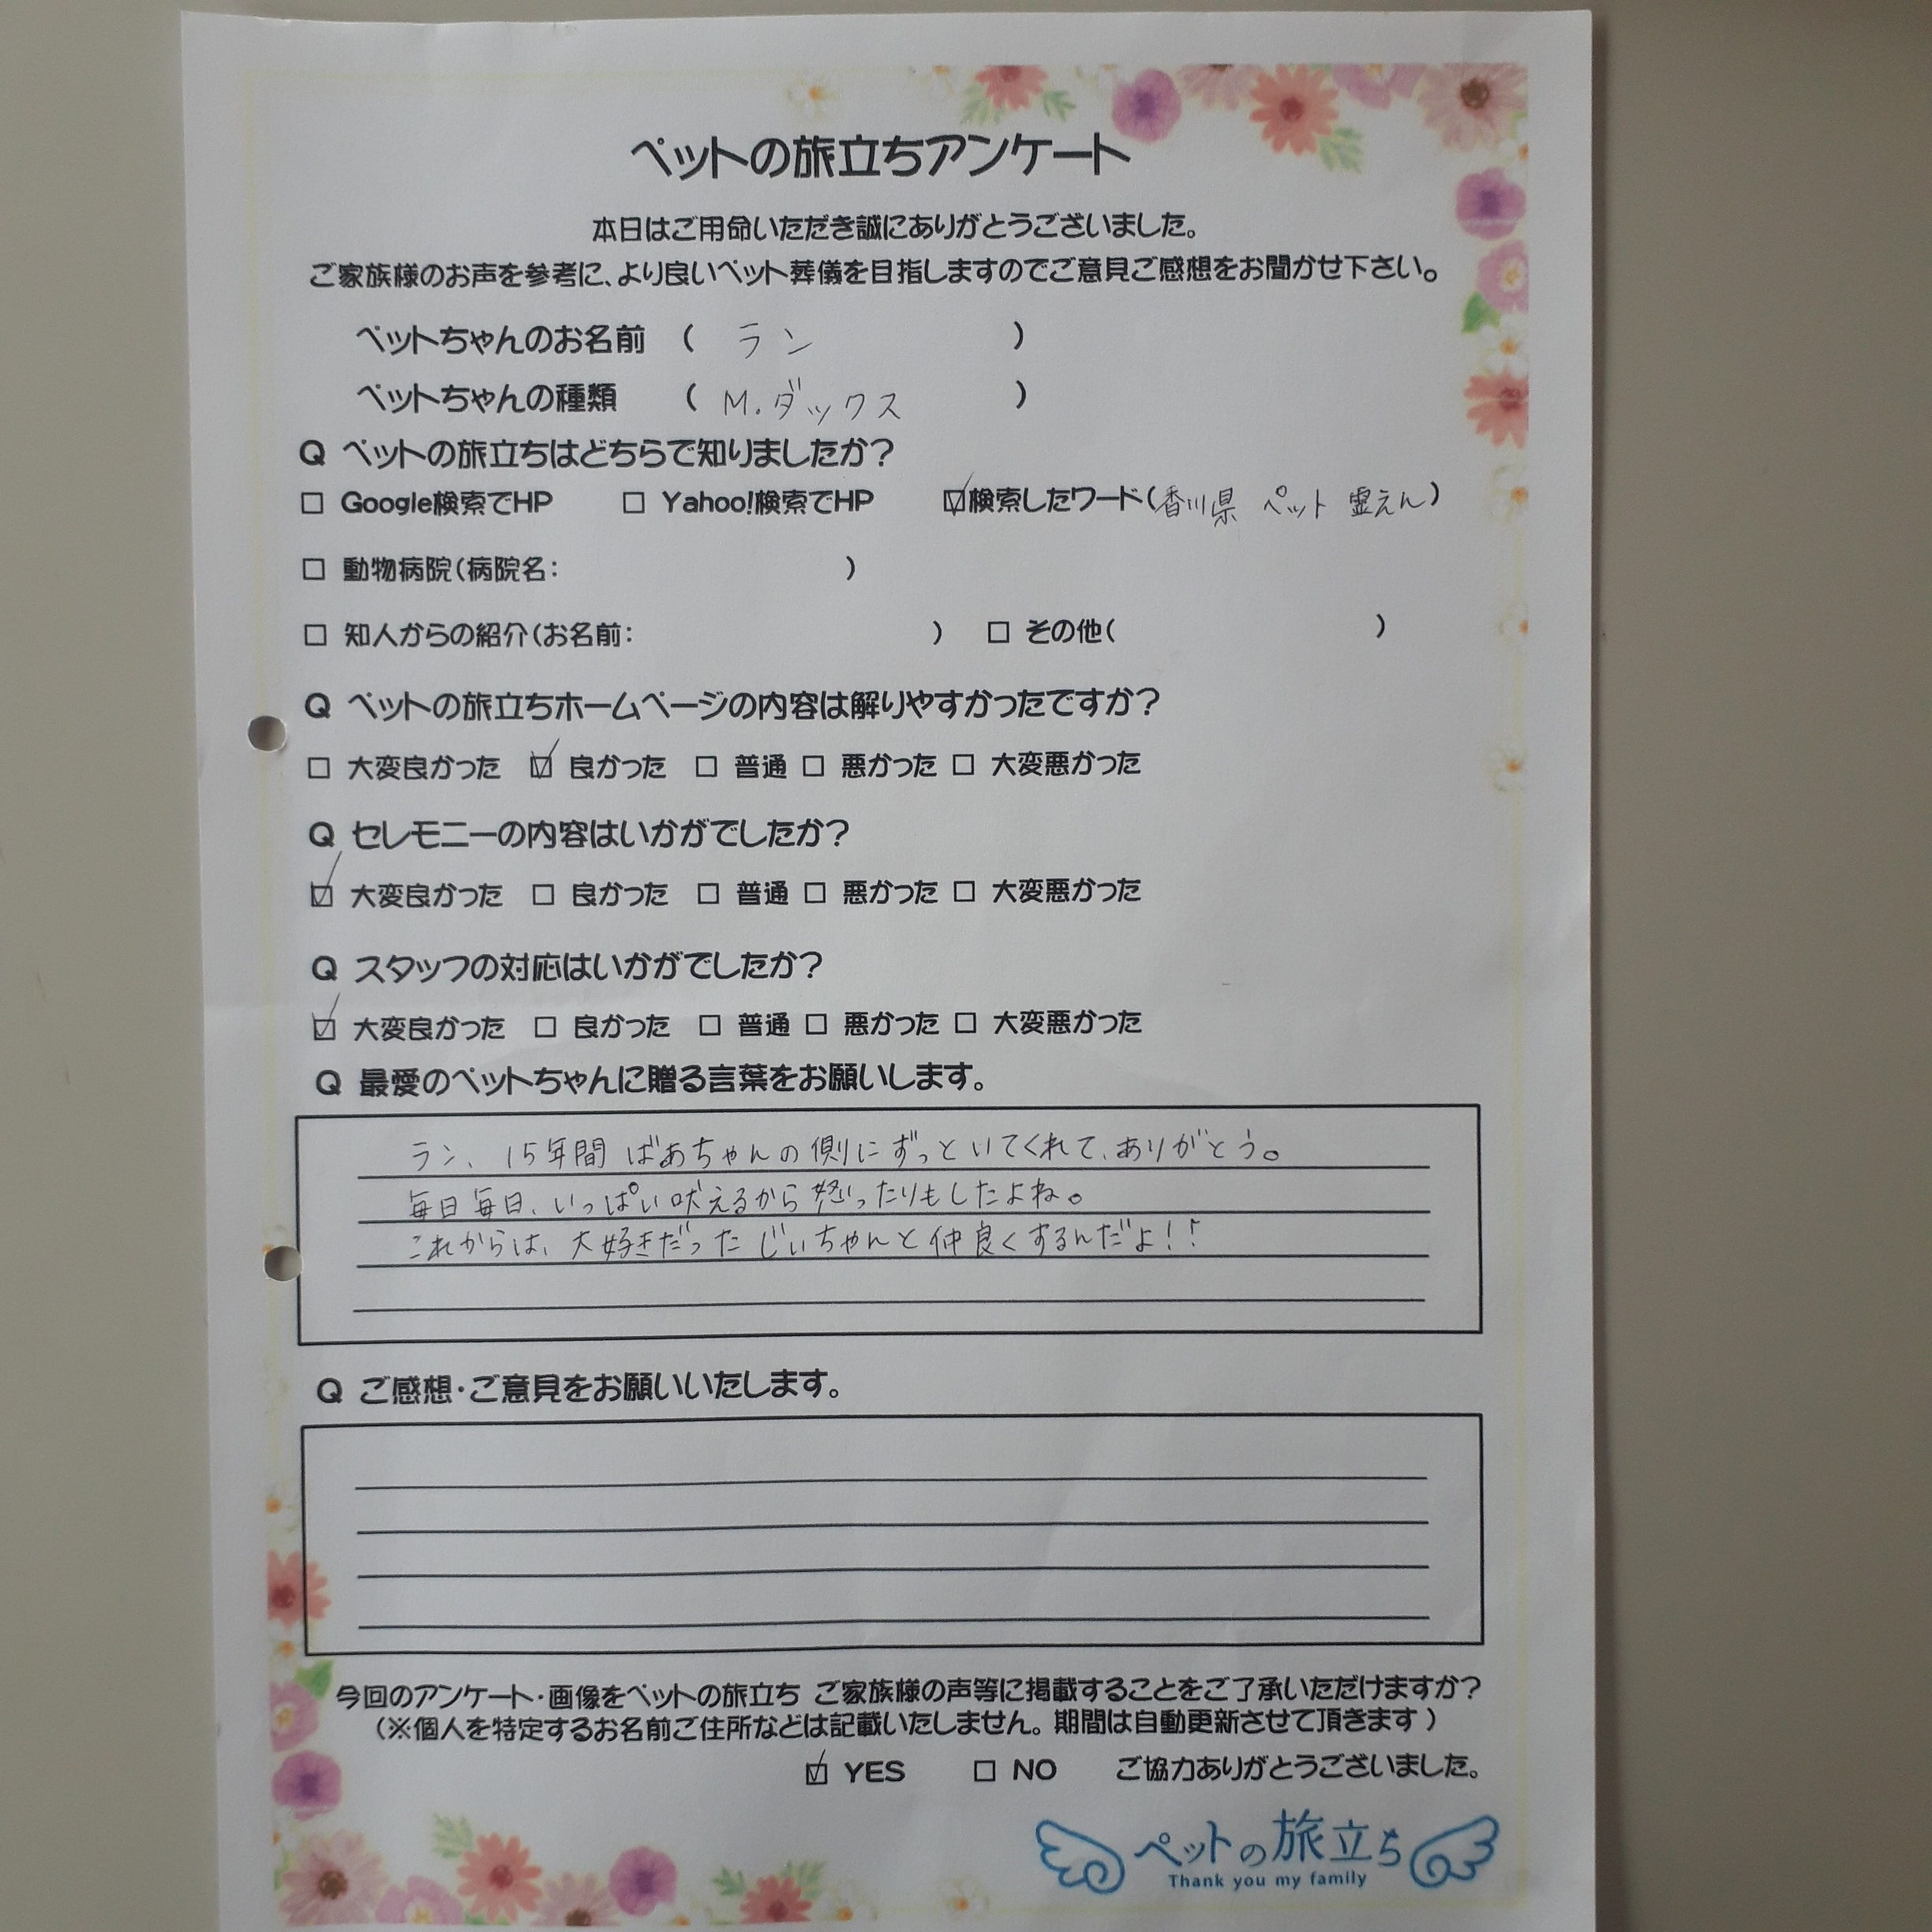 ペットの旅立ちアンケート
本日はご用命いただき誠にありがとうございました。
ご家族様のお声を参考に、より良いペット葬儀を目指しますのでご意見ご感想をお聞かせ下さい。
ペットちゃんのお名前 ( ラン )
ペットちゃんの種類 ( M.ダックス )
Q ペットの旅立ちはどちらで知りましたか?
□ Google検索でHP □ Yahoo!検索でHP ☑検索したワード(香川県 ペット 霊えん)
□ 動物病院(病院名: )
□ 知人からの紹介(お名前: ) □ その他( )
Q ペットの旅立ちホームページの内容は解りやすかったですか?
□ 大変良かった ☑ 良かった □ 普通 □ 悪かった □ 大変悪かった
Q セレモニーの内容はいかがでしたか?
☑ 大変良かった □ 良かった □ 普通 □ 悪かった □ 大変悪かった
Q スタッフの対応はいかがでしたか?
☑ 大変良かった □ 良かった □ 普通 □ 悪かった □ 大変悪かった
Q 最愛のペットちゃんに贈る言葉をお願いします。
ラン、15年間 ばあちゃんの側にずっといてくれて、ありがとう。
毎日毎日、いっぱい吠えるから怒ったりもしたよね。
これからは、大好きだったじいちゃんと仲良くするんだよ!!
Q ご感想・ご意見をお願いいたします。
今回のアンケート・画像をペットの旅立ち ご家族様の声等に掲載することをご了承いただけますか?
(※個人を特定するお名前ご住所などは記載いたしません。期間は自動更新させて頂きます)
☑ YES □ NO ご協力ありがとうございました。
ペットの旅立ち
Thank you my family